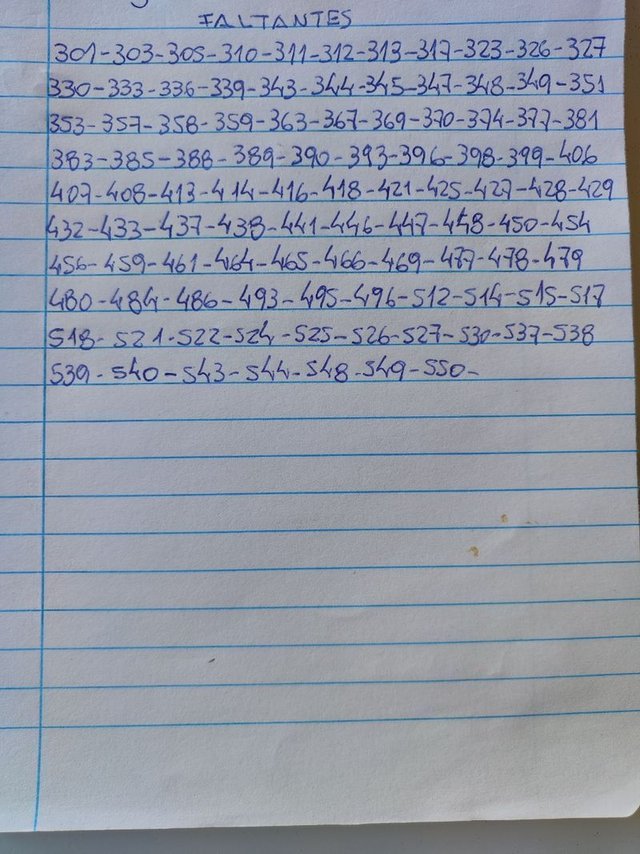 FALTANTES
301-303-305-310-311-312-313-317-323-326-327
330-333-336-339-343-344-345-347-348-349-351
353-357-358-359-363-367-369-370-374-377-381
383-385-388-389-390-393-396-398-399-406
407-408-413-414-416-418-421-425-427-428-429
432-433-437-438-441-446-447-448-450-454
456-459-461-464-465-466-469-477-478-479
480-484-486-493-495-496-512-514-515-517
518-521-522-524-525-526-527-530-537-538
539-540-543-544-548-549-550-